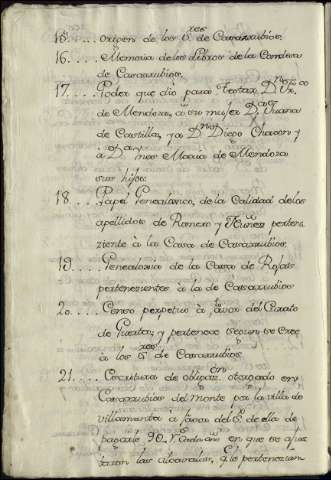 15.... origen de los S.res de Casarrubios.
16.... Memoria de los Libros de la Condesa
de Casarrubios.
17.... Poder que dio para Testar D.n Fran.co
de Mendoza, à su mujer D.a Juana
de Castilla, y à D.n Diego Chacon y
à D.a Maria de Mendoza
sus hijos.
18.... Papel Genealogico, de la Calidad de los
apellidos de Romero y Nuñez pertene
ziente à la Casa de Casarrubios.
19.... Genealogia de la Casa de Rojas
pertenecientes à la de Casarrubios
20.... Censo perpetuo à favor del Curato
de Huertas, y pertenece segun se cree
à los S.res de Casarrubios.
21.... Escritura de obligaz.on otorgada en
Casarrubios del Monte por la villa de
Villamanta à favor del S.r de ella de
pagarle 90. en cada año en que se ajus
taron las alcavalas, q.e le pertenezian